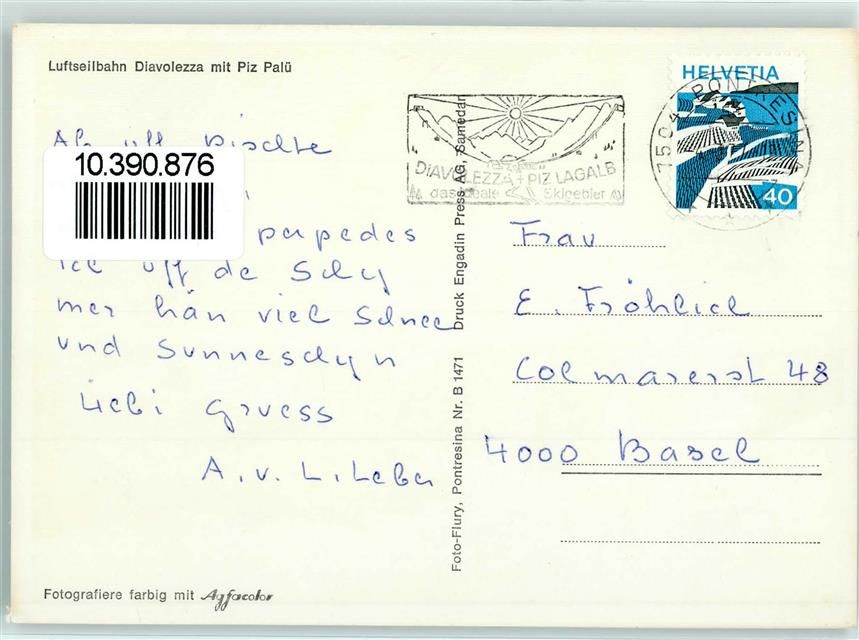 Luftseilbahn Diavolezza mit Piz Palü
Ab uff Pischte
10.390.876
perpedes
uff de Schy
mer hän viel Schnee
und Sunneschyn
Liebi Gruess
A. v. L. Leber
Fotografiere farbig mit Agfacolor
Foto-Flury, Pontresina Nr. B 1471 Druck Engadin Press AG, Samedan
DIAVOLEZZA + PIZ LAGALB
das ideale Skigebiet
7504 PONTRESINA
HELVETIA
40
Frau
E. Fröhlich
Colmarerst 48
4000 Basel